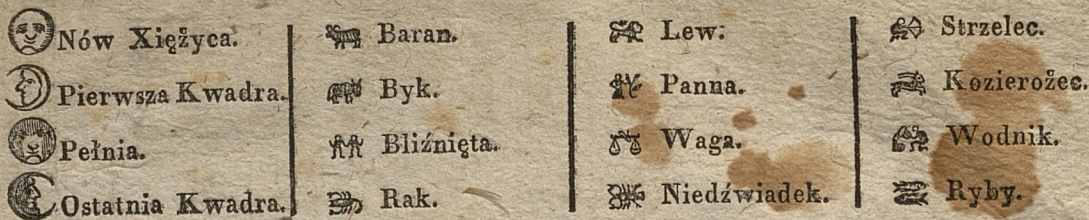 Nów Xiężyca.
Pierwsza Kwadra.
Pełnia.
Ostatnia Kwadra.
Baran.
Byk.
Bliźnięta.
Rak.
Lew.
Panna.
Waga.
Niedźwiadek.
Strzelec.
Kozierożec.
Wodnik.
Ryby.